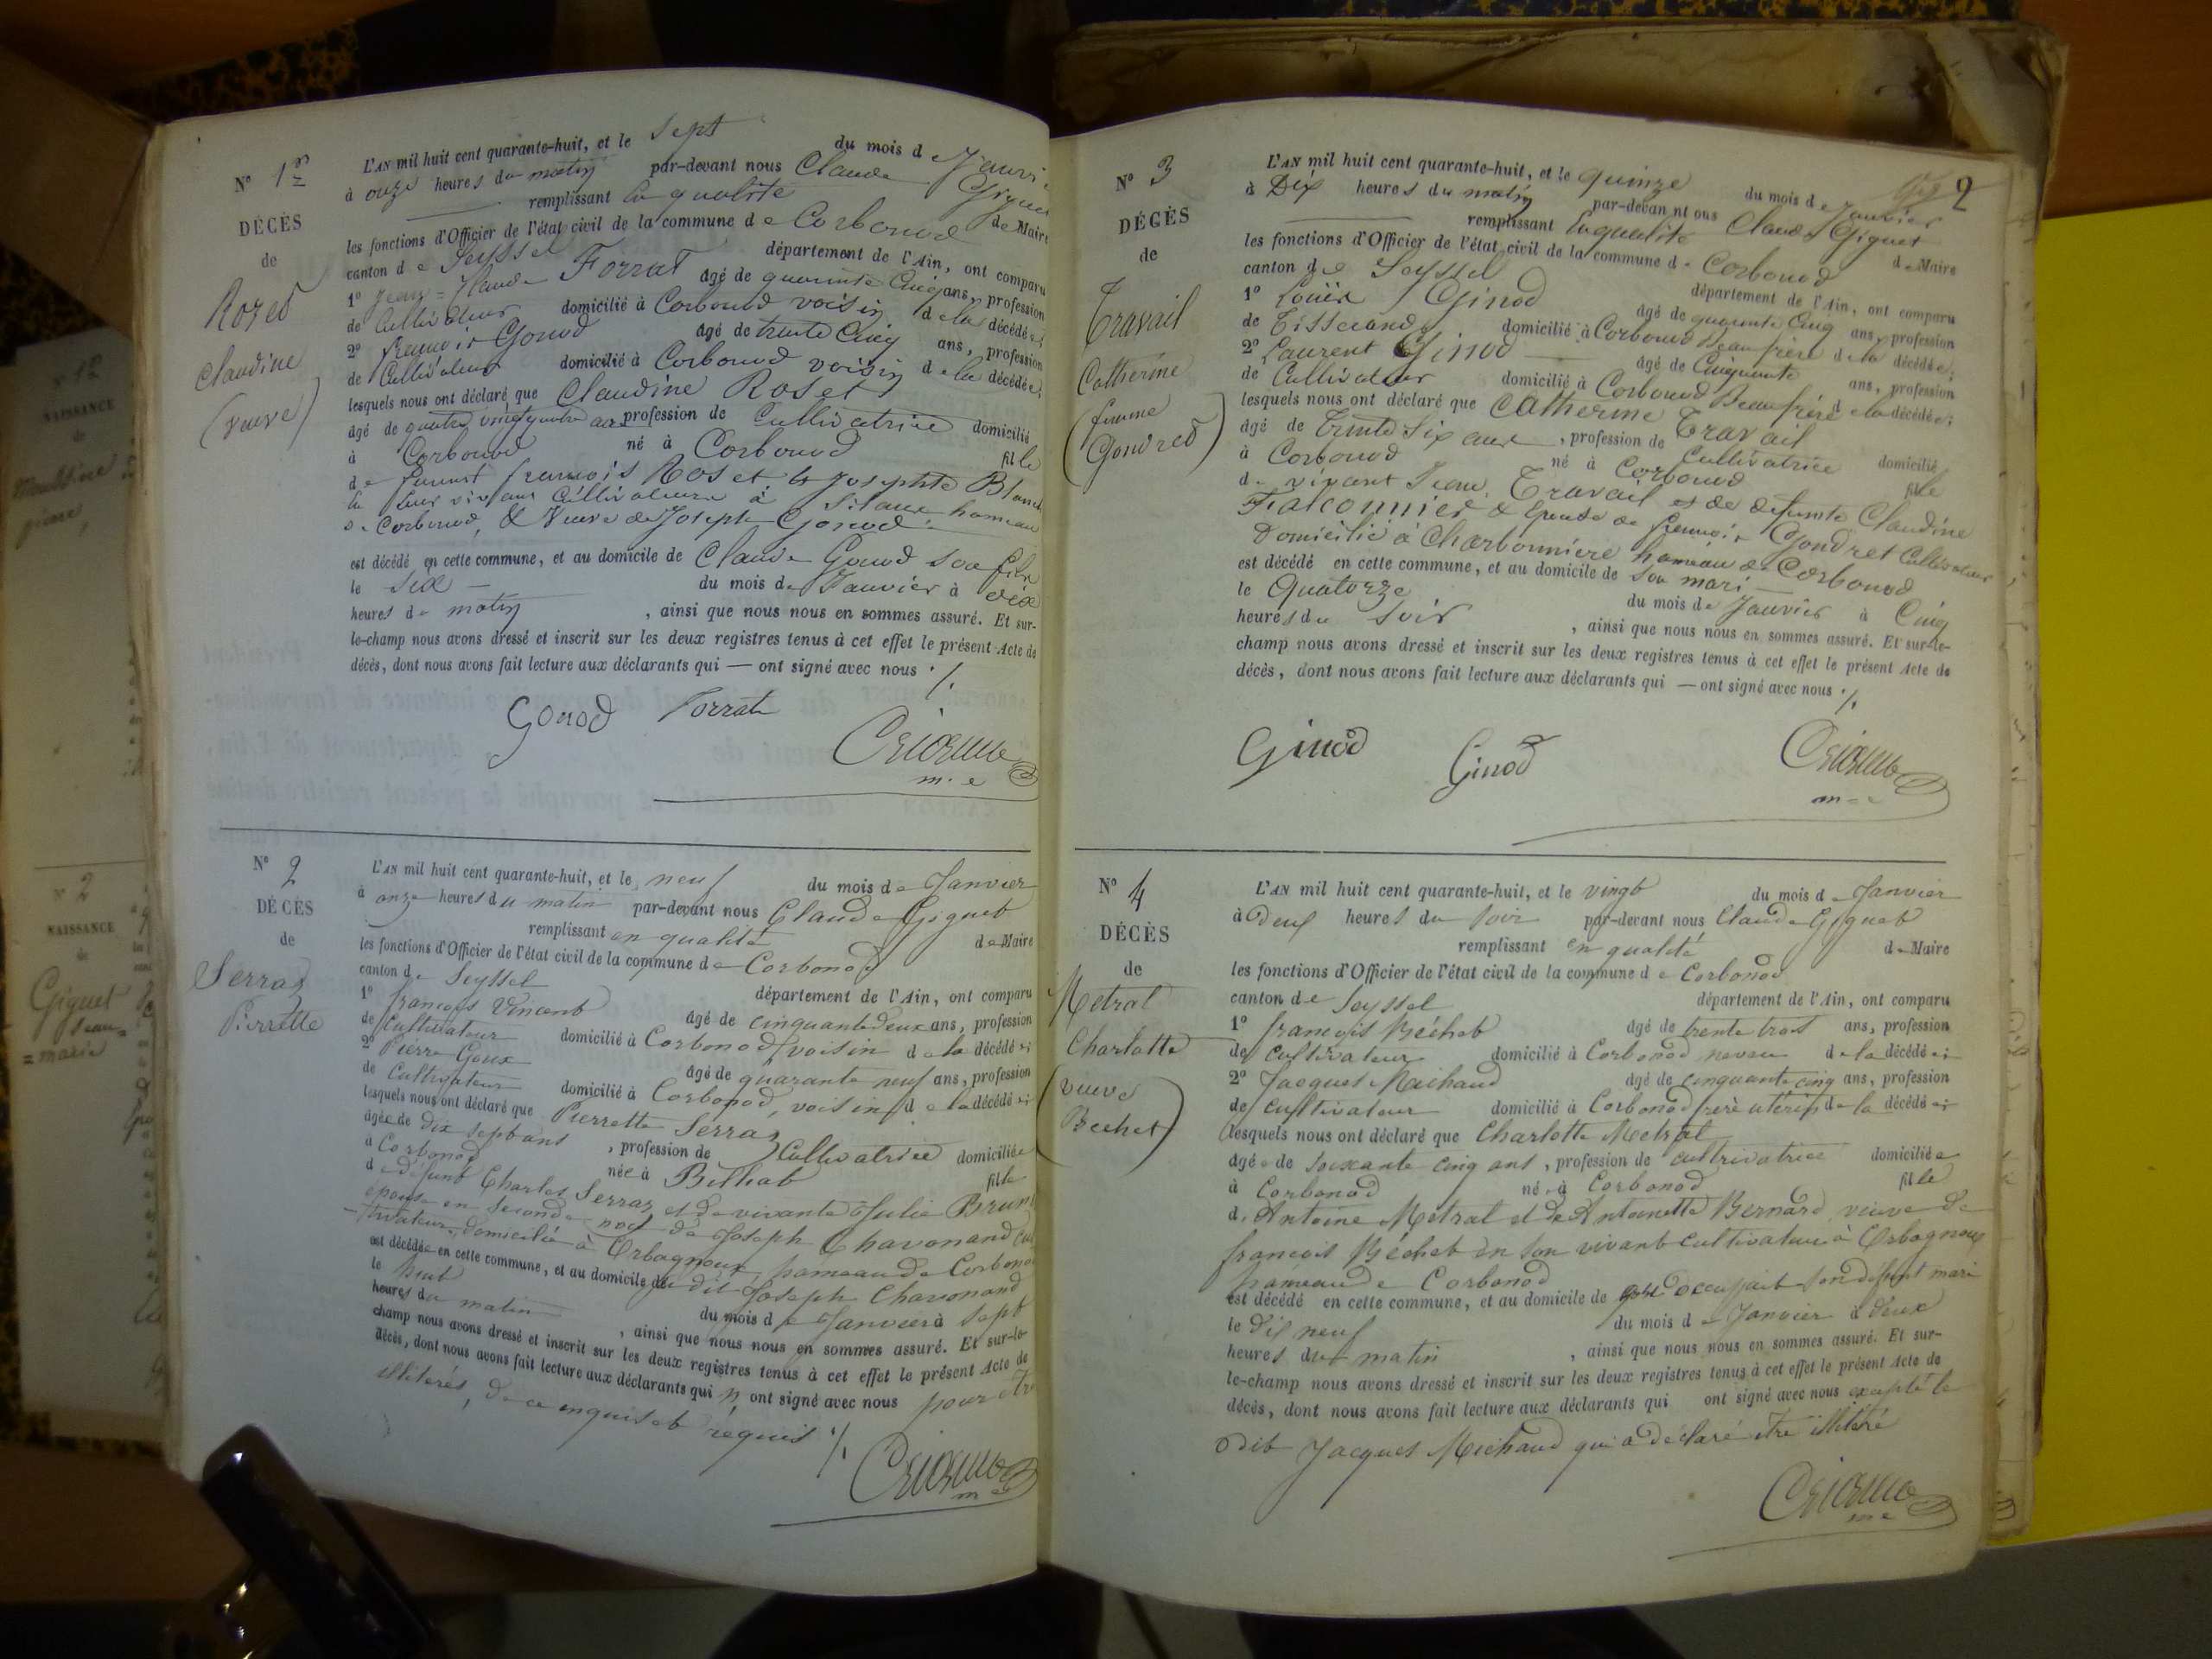 N° 1er
DÉCÈS
de
Rozed
Claudine
(veuve)
L'AN mil huit cent quarante-huit, et le Sept du mois de Janvi
à onze heures du matin par-devant nous Claude Giguet
remplissant la qualité de Maire
les fonctions d'Officier de l'état civil de la commune de Corbonod
canton de Seyssel département de l'Ain, ont comparu
1° Jean-Claude Forrat âgé de quarante Cinq ans, profession
de Cultivateur domicilié à Corbonod voisin de la décédée;
2° francois Gonod âgé de trente Cinq ans, profession
de Cultivateur domicilié à Corbonod voisin de la décédée;
lesquels nous ont déclaré que Claudine Roset
âgé de quatre vingt quatre ans profession de Cultivatrice domicilié
à Corbonod né à Corbonod fille
de Funnt francois Roset & Josephte Blanc
en leur vivant Cultivateurs à Silans hameau
de Corbonod, & Veuve de Joseph Gonod.
est décédé en cette commune, et au domicile de Claude Gonod son fils
le Six du mois de Janvier à dix
heures du matin, ainsi que nous nous en sommes assuré. Et sur-
le-champ nous avons dressé et inscrit sur les deux registres tenus à cet effet le présent Acte de
décès, dont nous avons fait lecture aux déclarants qui — ont signé avec nous ./.
Gonod Forrat
m.e
N° 2
DÉCÈS
de
Serraz
Pierrette
L'AN mil huit cent quarante-huit, et le neuf du mois de Janvier
à onze heures du matin par-devant nous Claude Giguet
remplissant en qualité de Maire
les fonctions d'Officier de l'état civil de la commune de Corbonod
canton de Seyssel département de l'Ain, ont comparu
1° françois Vincent âgé de cinquante deux ans, profession
de cultivateur domicilié à Corbonod voisin de la décédée;
2° Pierre Goux âgé de quarante neuf ans, profession
de Cultivateur domicilié à Corbonod, voisin de la décédée;
lesquels nous ont déclaré que Pierrette Serraz
âgée de dix sept ans, profession de Cultivatrice domiciliée
à Corbonod née à Belhat fille
de défunt Charles Serraz et de vivante Julie Brun
épouse en seconde noce de Joseph Chavanand cul
-tivateur, domicilié à Orbagnoux, hameau de Corbono
est décédée en cette commune, et au domicile du dit Joseph Chavonand
le huit du mois de Janvier à sept
heures du matin, ainsi que nous nous en sommes assuré. Et sur-le-
champ nous avons dressé et inscrit sur les deux registres tenus à cet effet le présent Acte de
décès, dont nous avons fait lecture aux déclarants qui n'ont signé avec nous pour être
illiterés, de ce enquis et requis ./.
N° 3
DÉCÈS
de
Travail
Catherine
(femme
Gondred)
2
L'AN mil huit cent quarante-huit, et le quinze du mois de Janvier
à Dix heures du matin par-devan nt ous Claude Giguet
remplissant En qualité de Maire
les fonctions d'Officier de l'état civil de la commune de Corbonod
canton de Seyssel département de l'Ain, ont comparu
1° Louis Ginod âgé de quarante Cinq ans, profession
de Tisserand domicilié à Corbonod Beaufrère de la décédée;
2° Laurent Ginod âgé de Cinquante ans, profession
de Cultivateur domicilié à Corbonod Beaufrère de la décédée;
lesquels nous ont déclaré que Catherine Travail
âgé de Trente Six ans, profession de Cultivatrice domicilié
à Corbonod né à Corbonod fille
de vivant Jean Travail et de defunte Claudine
Falconnier & Epouse de francois Gondret Cultivateur
Domicilié à Charbonniere hameau de Corbonod
est décédé en cette commune, et au domicile de Son mari
le Quatorze du mois de Janvier à Cinq
heures du Soir, ainsi que nous nous en sommes assuré. Et sur-le-
champ nous avons dressé et inscrit sur les deux registres tenus à cet effet le présent Acte de
décès, dont nous avons fait lecture aux déclarants qui — ont signé avec nous ./.
Ginod Ginod
N° 4
DÉCÈS
de
Metral
Charlotte
(veuve
Bechet)
L'AN mil huit cent quarante-huit, et le vingt du mois de Janvier
à deux heures du soir par-devant nous Claude Giguet
remplissant en qualité de Maire
les fonctions d'Officier de l'état civil de la commune de Corbonod
canton de Seyssel département de l'Ain, ont comparu
1° françois Béchet âgé de trente trois ans, profession
de cultivateur domicilié à Corbonod neveu de la décédée;
2° Jacques Michaud âgé de cinquante cinq ans, profession
de cultivateur domicilié à Corbonod frère utérin de la décédée;
lesquels nous ont déclaré que Charlotte Metral
âgée de soixante cinq ans, profession de cultivatrice domiciliée
à Corbonod née à Corbonod fille
d. Antoine Métral et de Antoinette Bernard, veuve de
françois Béchet en son vivant cultivateur à Orbagnoux
hameau de Corbonod
est décédé en cette commune, et au domicile de qu'occupait son défunt mari
le dix neuf du mois de Janvier à deux
heures du matin, ainsi que nous nous en sommes assuré. Et sur-
le-champ nous avons dressé et inscrit sur les deux registres tenus à cet effet le présent Acte de
décès, dont nous avons fait lecture aux déclarants qui ont signé avec nous excepté le
dit Jacques Michaud qui a déclaré être illitéré
N° 12
NAISSANCE
N° 2
NAISSANCE
de
Giguet
Jean=
=marie